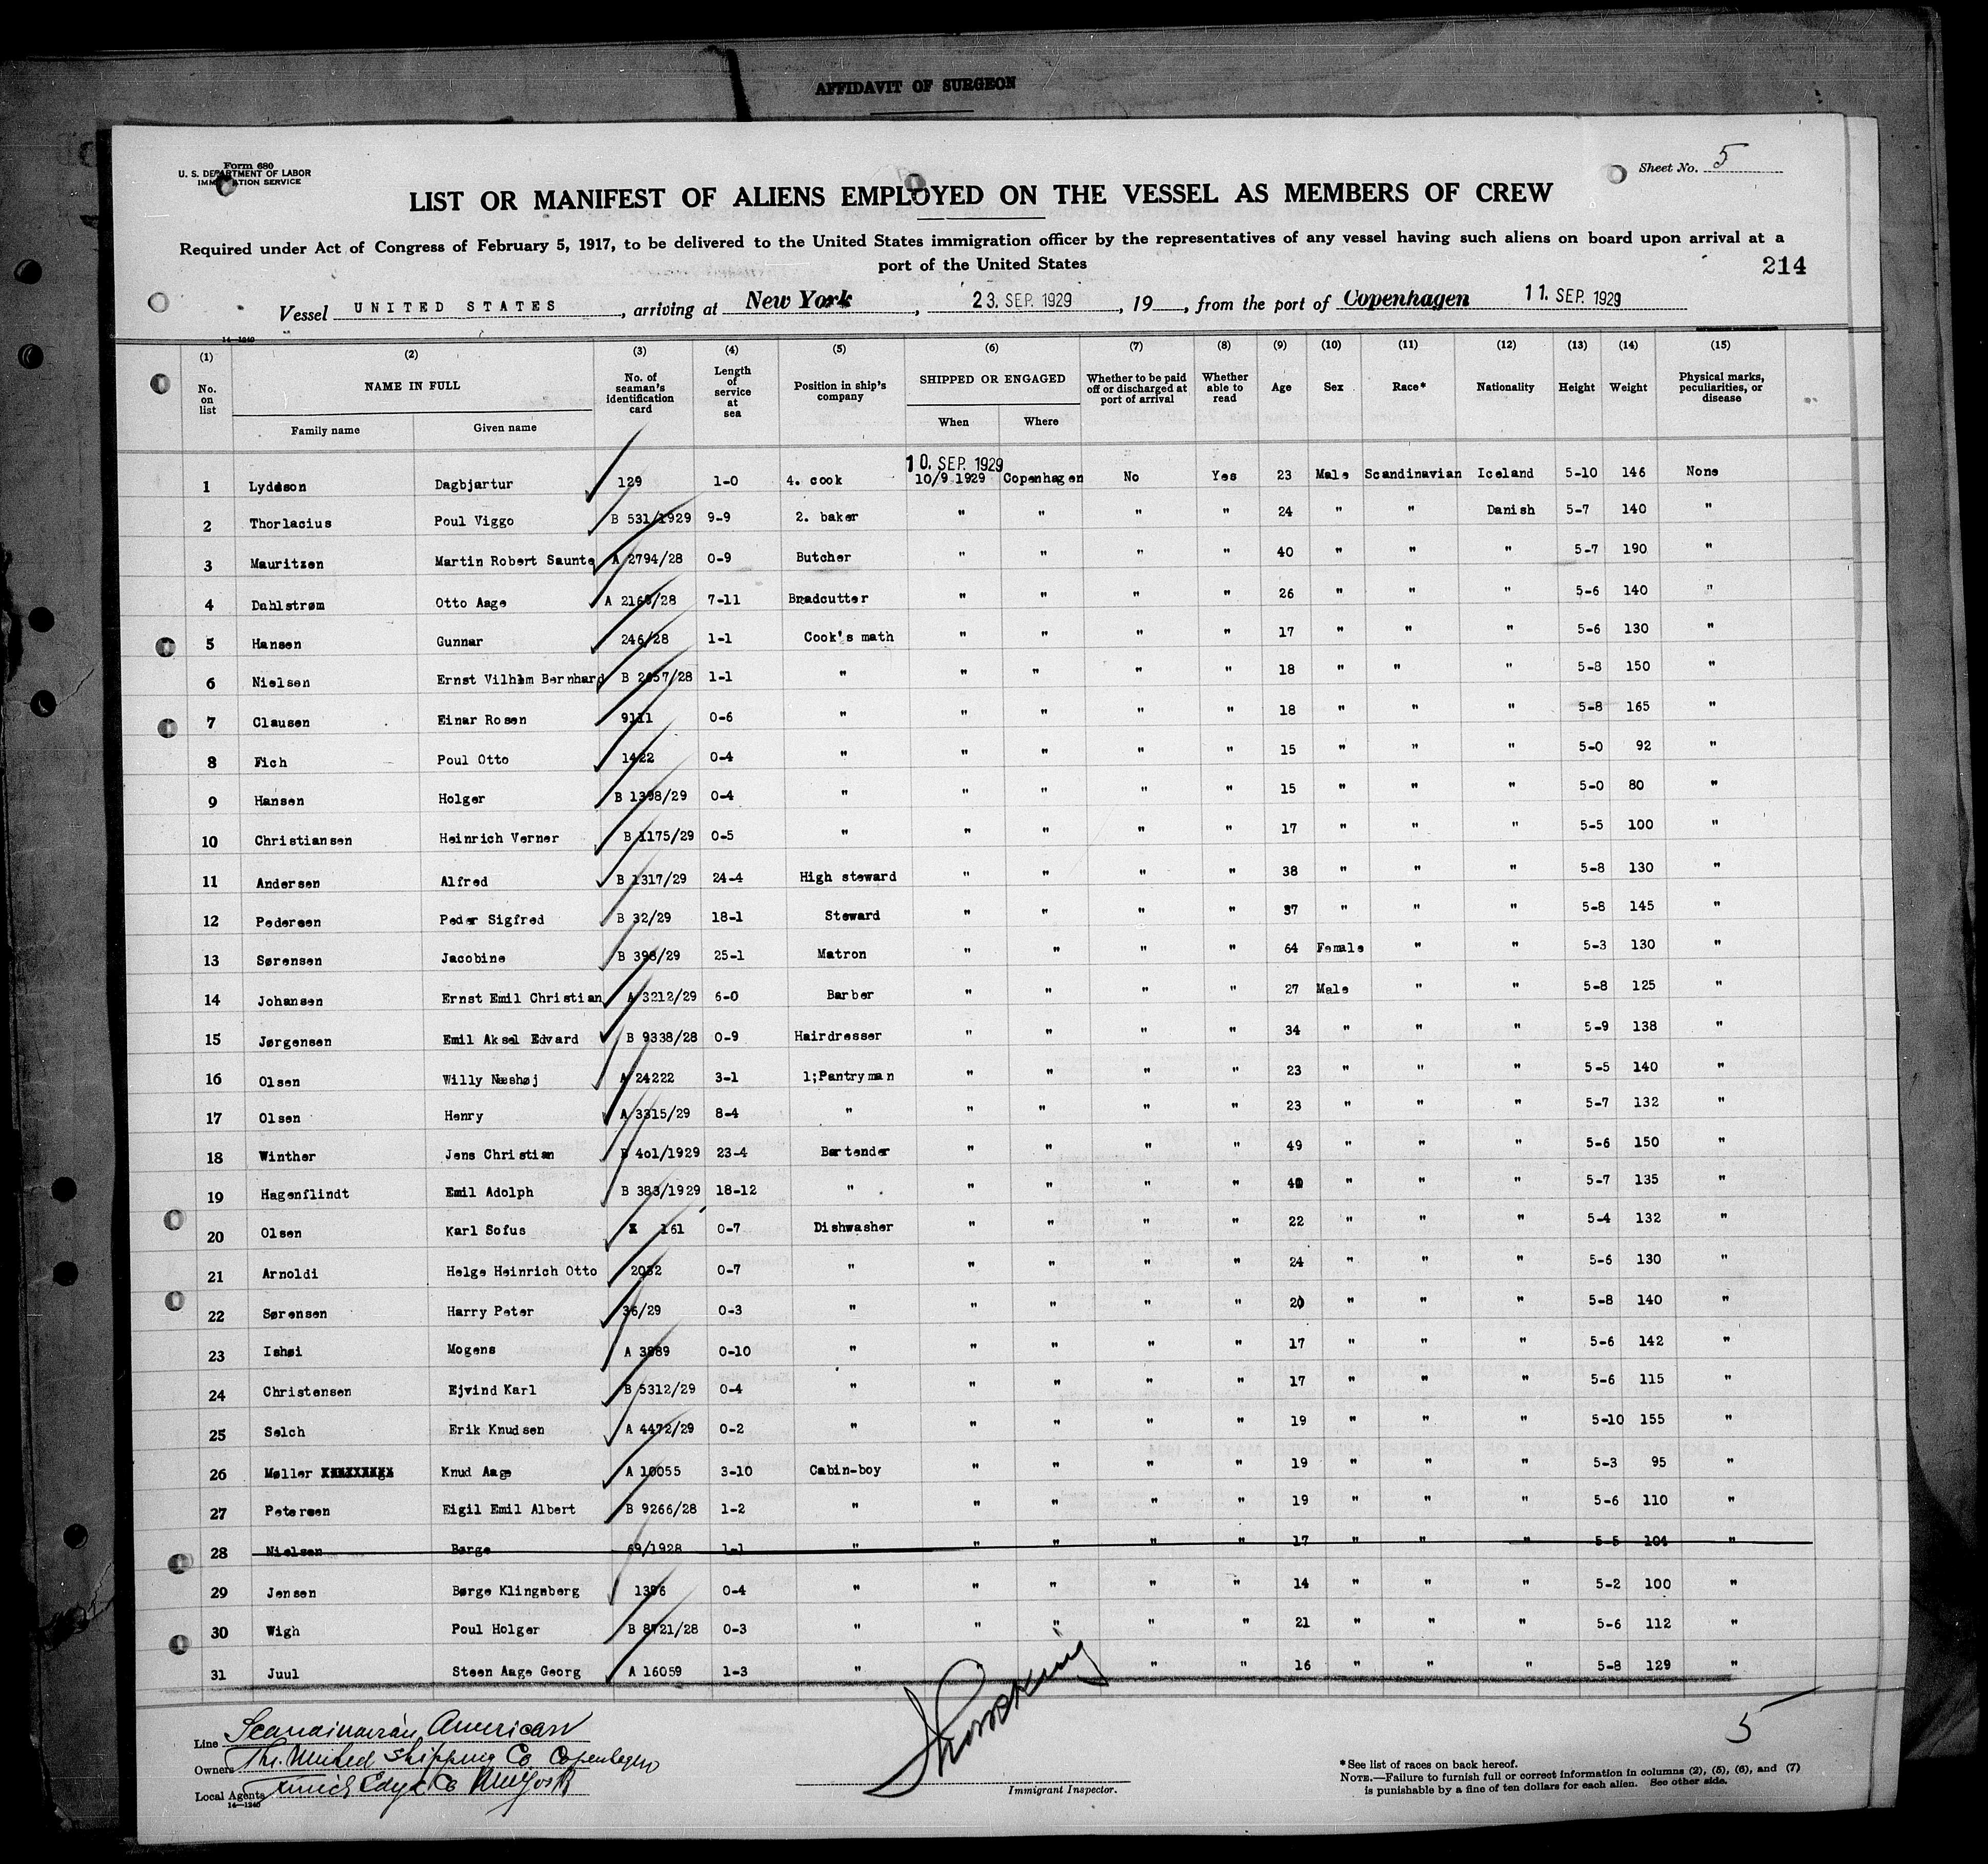 AFFIDAVIT OF SURGEON
Form 680
U. S. DEPARTMENT OF LABOR
IMMIGRATION SERVICE
Sheet No. 5
LIST OR MANIFEST OF ALIENS EMPLOYED ON THE VESSEL AS MEMBERS OF CREW
Required under Act of Congress of February 5, 1917, to be delivered to the United States immigration officer by the representatives of any vessel having such aliens on board upon arrival at a
port of the United States
214
Vessel UNITED STATES, arriving at New York, 23. SEP. 1929, 19, from the port of Copenhagen 11. SEP. 1929
14—1240
(1) (2) (3) (4) (5) (6) (7) (8) (9) (10) (11) (12) (13) (14) (15)
No. on list NAME IN FULL No. of seaman's identification card Length of service at sea Position in ship's company SHIPPED OR ENGAGED Whether to be paid off or discharged at port of arrival Whether able to read Age Sex Race* Nationality Height Weight Physical marks, peculiarities, or disease
Family name Given name When Where
10. SEP. 1929
1 Lyddson Dagbjartur 129 1-0 4. cook 10/9 1929 Copenhagen No Yes 23 Male Scandinavian Iceland 5-10 146 None
2 Thorlacius Poul Viggo B 531/1929 9-9 2. baker " " " " 24 " " Danish 5-7 140 "
3 Mauritzen Martin Robert Saunte A 2794/28 0-9 Butcher " " " " 40 " " " 5-7 190 "
4 Dahlstrøm Otto Aage A 2168/28 7-11 Bradcutter " " " " 26 " " " 5-6 140 "
5 Hansen Gunnar 246/28 1-1 Cook's math " " " " 17 " " " 5-6 130 "
6 Nielsen Ernst Vilhlm Bernhard B 2657/28 1-1 " " " " " 18 " " " 5-8 150 "
7 Clausen Einar Rosen 9111 0-6 " " " " " 18 " " " 5-8 165 "
8 Fich Poul Otto 1422 0-4 " " " " " 15 " " " 5-0 92 "
9 Hansen Holger B 1398/29 0-4 " " " " " 15 " " " 5-0 80 "
10 Christiansen Heinrich Verner B 1175/29 0-5 " " " " " 17 " " " 5-5 100 "
11 Andersen Alfred B 1317/29 24-4 High steward " " " " 38 " " " 5-8 130 "
12 Pedersen Peder Sigfred B 32/29 18-1 Steward " " " " 37 " " " 5-8 145 "
13 Sørensen Jacobine B 398/29 25-1 Matron " " " " 64 Female " " 5-3 130 "
14 Johansen Ernst Emil Christian A 3212/29 6-0 Barber " " " " 27 Male " " 5-8 125 "
15 Jørgensen Emil Aksel Edvard B 9338/28 0-9 Hairdresser " " " " 34 " " " 5-9 138 "
16 Olsen Willy Næshøj A 24222 3-1 1;Pantryman " " " " 23 " " " 5-5 140 "
17 Olsen Henry A 3315/29 8-4 " " " " " 23 " " " 5-7 132 "
18 Winther Jens Christian B 4o1/1929 23-4 Bartender " " " " 49 " " " 5-6 150 "
19 Hagenflindt Emil Adolph B 383/1929 18-12 " " " " " 40 " " " 5-7 135 "
20 Olsen Karl Sofus 161 0-7 Dishwasher " " " " 22 " " " 5-4 132 "
21 Arnoldi Helge Heinrich Otto 2032 0-7 " " " " " 24 " " " 5-6 130 "
22 Sørensen Harry Peter 36/29 0-3 " " " " " 20 " " " 5-8 140 "
23 Ishøi Mogens A 3889 0-10 " " " " " 17 " " " 5-6 142 "
24 Christensen Ejvind Karl B 5312/29 0-4 " " " " " 17 " " " 5-6 115 "
25 Selch Erik Knudsen A 4472/29 0-2 " " " " " 19 " " " 5-10 155 "
26 Møller Knud Aage A 10055 3-10 Cabin-boy " " " " 19 " " " 5-3 95 "
27 Petersen Eigil Emil Albert B 9266/28 1-2 " " " " " 19 " " " 5-6 110 "
28 Nielsen Børge 69/1928 1-1 " " " " " 17 " " " 5-5 104 "
29 Jensen Børge Klingsberg 1396 0-4 " " " " " 14 " " " 5-2 100 "
30 Wigh Poul Holger B 8721/28 0-3 " " " " " 21 " " " 5-6 112 "
31 Juul Steen Aage Georg A 16059 1-3 " " " 16 " " " 5-8 129 "
Line Scandinavian American
Owners The United Shipping Co Copenhagen
Local Agents Edye Co New York
14—1240
Immigrant Inspector.
5
*See list of races on back hereof.
NOTE.—Failure to furnish full or correct information in columns (2), (5), (6), and (7)
is punishable by a fine of ten dollars for each alien. See other side.